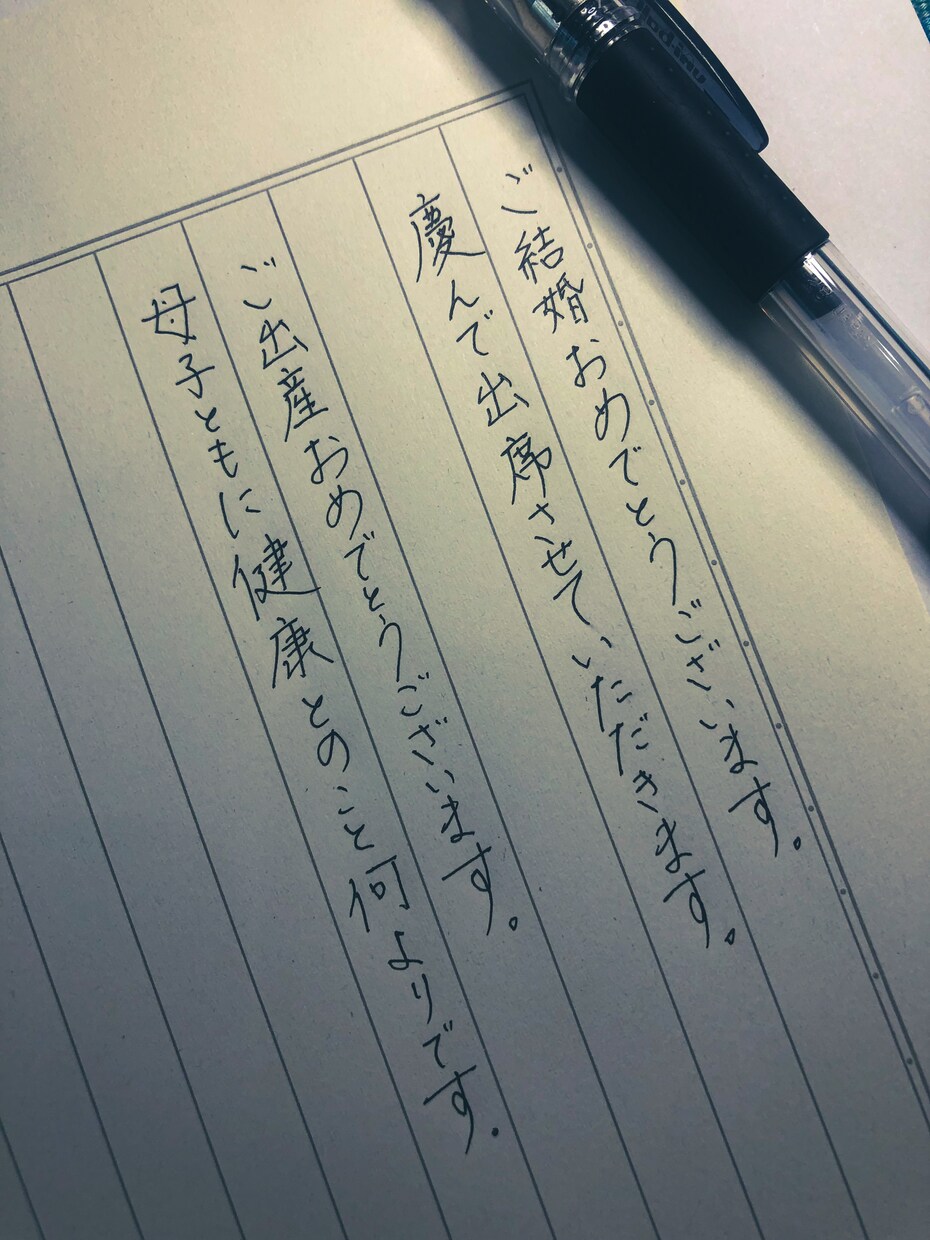 ご結婚おめでとうございます。
慶んで出席させていただきます。
ご出産おめでとうございます。
母子ともに健康とのこと何よりです。